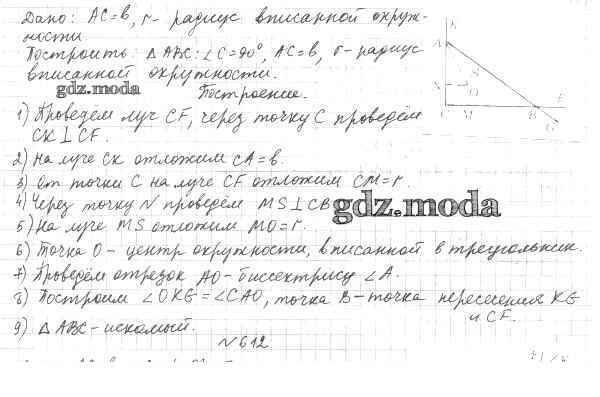 Дано: AC=b, r- радиус вписанной окруж-
ности.
Построить: △ABC: ∠C=90°, AC=b, r-радиус
вписанной окружности.
gdz.moda
Построение.
1) Проведём луч CF, через точку C проведём
CK⊥CF.
2) на луче CK отложим CA=b.
3) От точки C на луче CF отложим CM=r.
4) Через точку N проведём MS⊥CB
gdz.moda
5) На луче MS отложим MO=r.
6) Точка O- центр окружности, вписанной в треугольник.
7) Проведём отрезок AO-биссектрису ∠A.
8) Построим ∠OKG=∠CAO, точка B-точка пересечения KG
и CF.
9) △ABC-искомый.
№612
K
A
S
N
O
C M B F
G